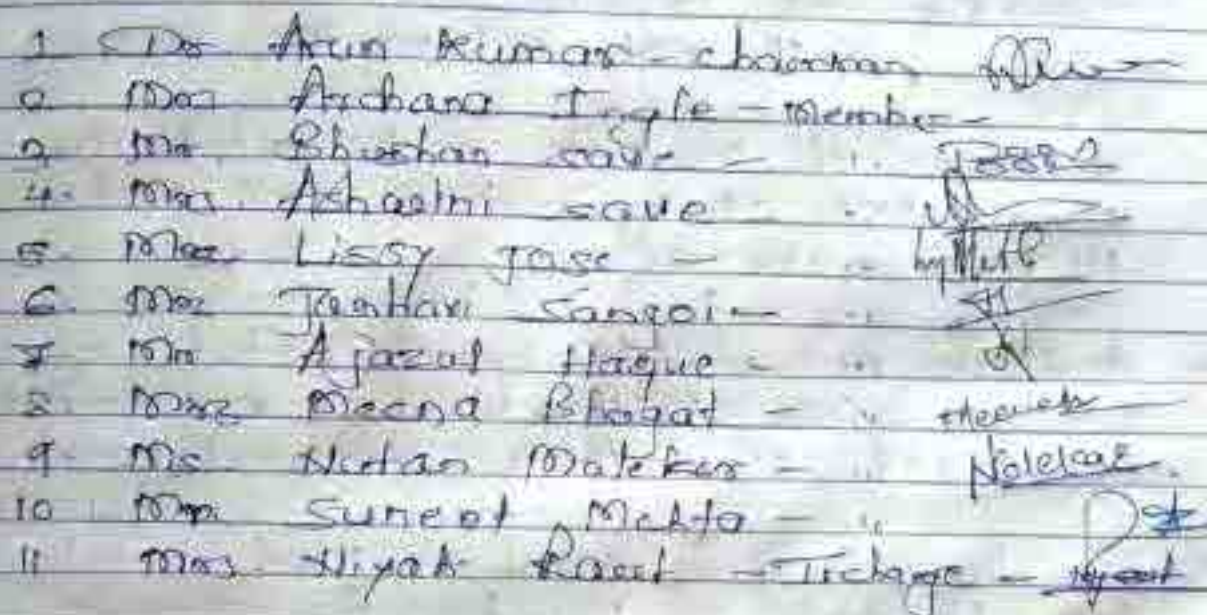 1 Dr Arun Kumar - chairman
2. Mrs Archana Ingle - Member -
3. Mr. Bhushan save - "
4. Mrs. Ashwini save - "
5. Mrs. Lissy Jose - "
6 Mrs Sangoi - "
7 Mr. Ajazul Haque - "
8. Mrs Meena Bhagat - "
9. Ms. Nutan -  "
10 Mehta - "
11 Mrs. Raut - Incharge -